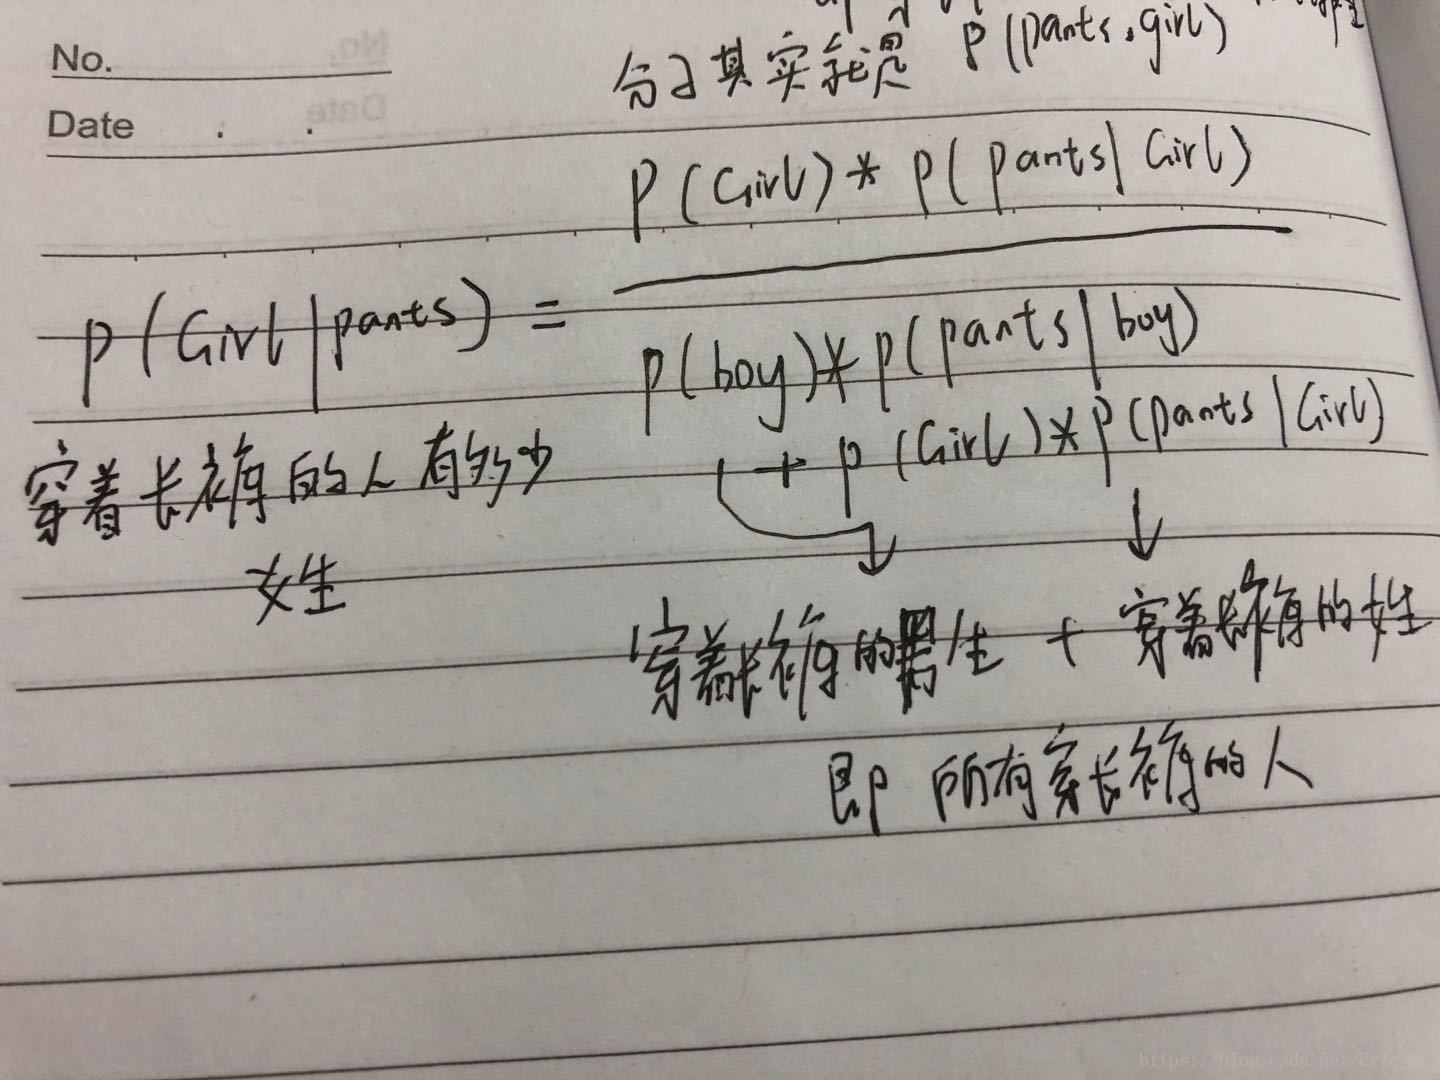 No.
Date
分子其实就是 P(pants,girl)
P(Girl)*P(pants|Girl)
P(Girl|pants)=
P(boy)*P(pants|boy)
+P(Girl)*P(pants|Girl)
穿着长裤的人有多少
女生
穿着长裤的男生 + 穿着长裤的女生
即 所有穿长裤的人